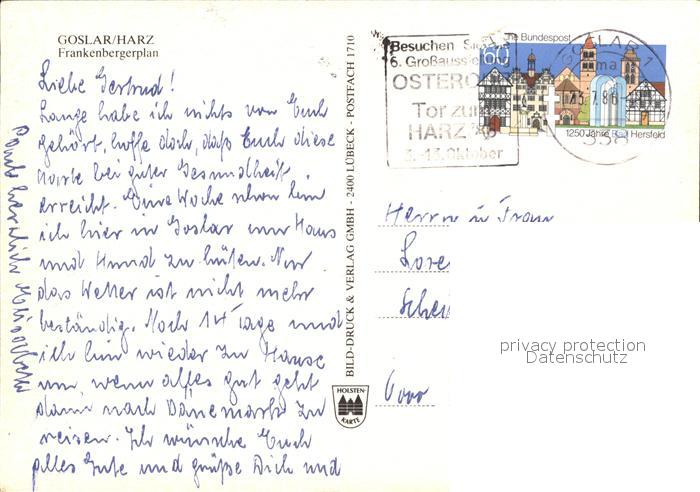 GOSLAR/HARZ
Frankenbergerplan
Liebe Gertrud!
Lange habe ich nichts von Euch
gehört, hoffe doch, daß Euch diese
Karte bei guter Gesundheit
erreicht. Eine Woche schon bin
ich hier in Goslar um Haus
und Hund zu hüten. Nur
das Wetter ist nicht mehr
beständig. Noch 14 Tage und
ich bin wieder zu Hause
um wenn alles gut geht
dann nach Dänemark zu
reisen. Ich wünsche Euch
alles Gute und grüße Dich und
herzlich
BILD-DRUCK & VERLAG GMBH - 2400 LÜBECK - POSTFACH 1710
HOLSTEN
KARTE
Besuchen Sie
6. Großausstellung
OSTERO
Tor zum
HARZ
3.-13. Oktober
Bundespost
60
GOSLAR 1
338
1250 Jahre Bad Hersfeld
Herrn u Frau
Lore
Schei
privacy protection
Datenschutz